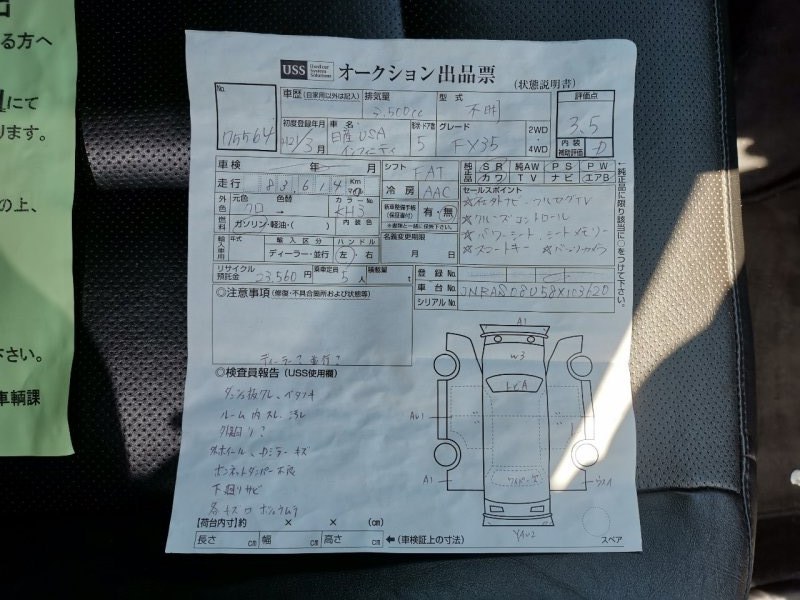 る方へ
にて
ります。
の上、
ださい。
車輌課
USS オークション出品票 (状態説明書)
No. 75564
車歴(自家用以外は記入) 排気量 3,500cc 型式 不明 評価点 3.5
初度登録年月 H21/3月 車名 日産USA インフィニティ ドア数 5 グレード FX35 2WD 4WD 内装補助評価 D
車検 年 月 シフト FAT 純正品 SR 純AW PS PW
カワ TV ナビ エアB
走行 83614 Km 冷房 AAC
セールスポイント
外色 元色 クロ 色替 カラーNo. KH3 有・無
☆社外ナビ・フルセグTV
燃料 ガソリン・軽油・( ) 内装色
☆クルーズコントロール
輸入車用 年式 輸入区分 ディーラー・並行 ハンドル 左 右 名義変更期限 月 日
☆パワーシート、シートメモリー
☆スマートキー
リサイクル預託金 23,560円 乗車定員 5人 積載量 t
登録No.
車台No. JNRAS08U58X103120
シリアルNo.
←純正品に限り該当に○をつけて下さい。
◎注意事項(修復・不具合箇所および状態等)
◎検査員報告(USS使用欄)
ダッシュ板クレ、ベタツキ
ルーム内スレ、汚レ
ボンネットダンパー不良
下廻りサビ
A1
W3
AU1
A1
スペア
【荷台内寸】約 × × (cm)
長さ cm 幅 cm 高さ cm ←(車検証上の寸法)